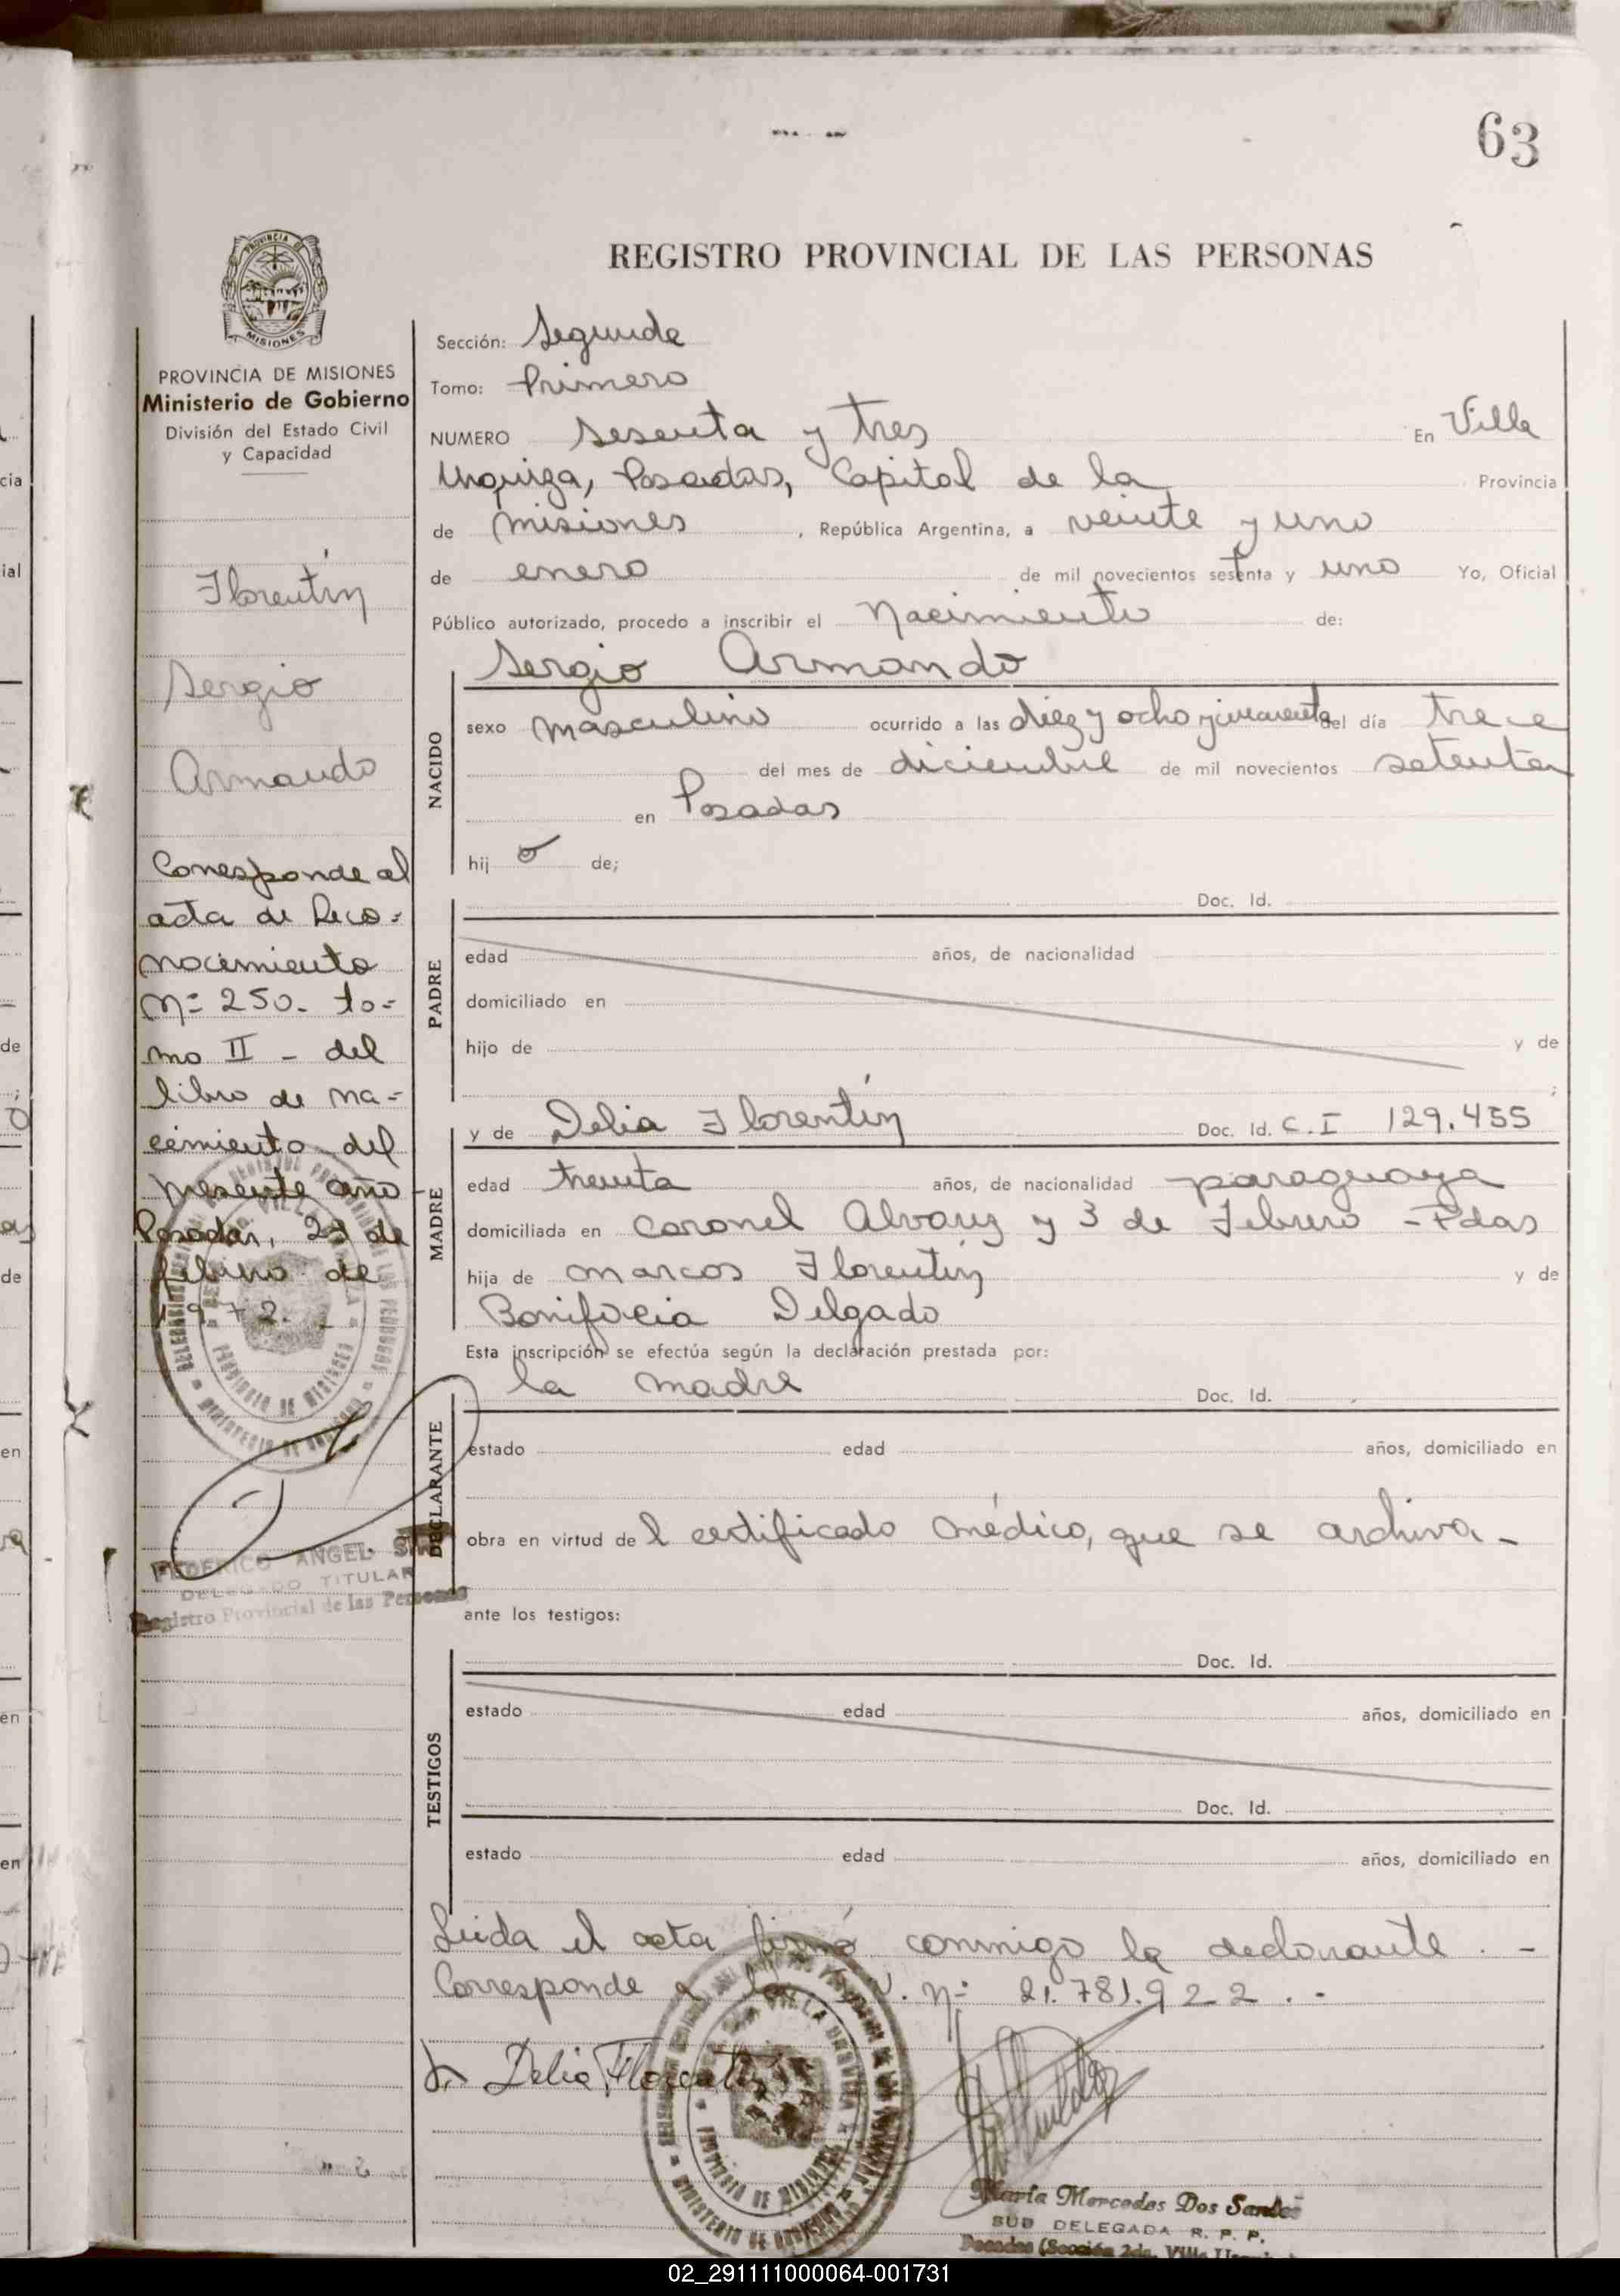 63
REGISTRO PROVINCIAL DE LAS PERSONAS
PROVINCIA DE MISIONES
Ministerio de Gobierno
División del Estado Civil
y Capacidad
Florentín
Sergio
Armando
Corresponde al
acta de Reco-
nocimiento
Nº 250. to-
mo II - del
libro de na-
cimiento del
presente año
Posadas, 23 de
febrero de
1972.
FEDERICO ANGEL
DELEGADO TITULAR
Registro Provincial de las Personas
Sección: Segunda
Tomo: Primero
NUMERO sesenta y tres En Villa
Urquiza, Posadas, Capital de la Provincia
de Misiones, República Argentina, a veinte y uno
de enero de mil novecientos setenta y uno Yo, Oficial
Público autorizado, procedo a inscribir el Nacimiento de:
Sergio Armando
NACIDO
sexo masculino ocurrido a las diez y ocho y cincuenta del día trece
del mes de diciembre de mil novecientos setenta
en Posadas
hij o de;
Doc. Id.
PADRE
edad años, de nacionalidad
domiciliado en
hijo de y de
;
y de Delia Florentín Doc. Id. C.I 129.455
MADRE
edad treinta años, de nacionalidad paraguaya
domiciliada en Coronel Alvarez y 3 de Febrero - Pdas
hija de Marcos Florentín y de
Bonifacia Delgado
Esta inscripción se efectúa según la declaración prestada por:
la madre Doc. Id.
DECLARANTE
estado edad años, domiciliado en
obra en virtud de l certificado médico, que se archiva -
ante los testigos:
Doc. Id.
TESTIGOS
estado edad años, domiciliado en
Doc. Id.
estado edad años, domiciliado en
Leida el acta firmó conmigo la declarante. -
Corresponde a Nº 21.781.922. -
Delia Florentín
María Mercedes Dos Santos
SUB DELEGADA R. P. P.
Posadas (Sección 2da. Villa
02_291111000064-001731